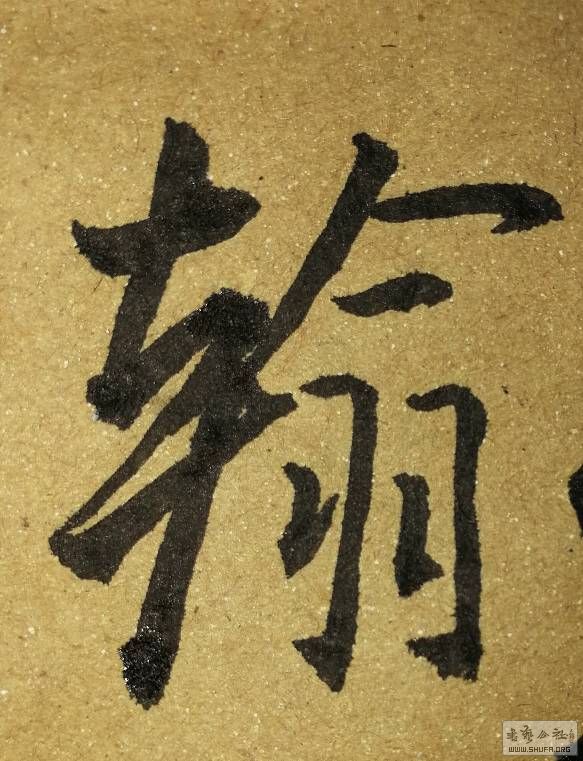 翰
書藝公社
WWW.SHUFA.ORG